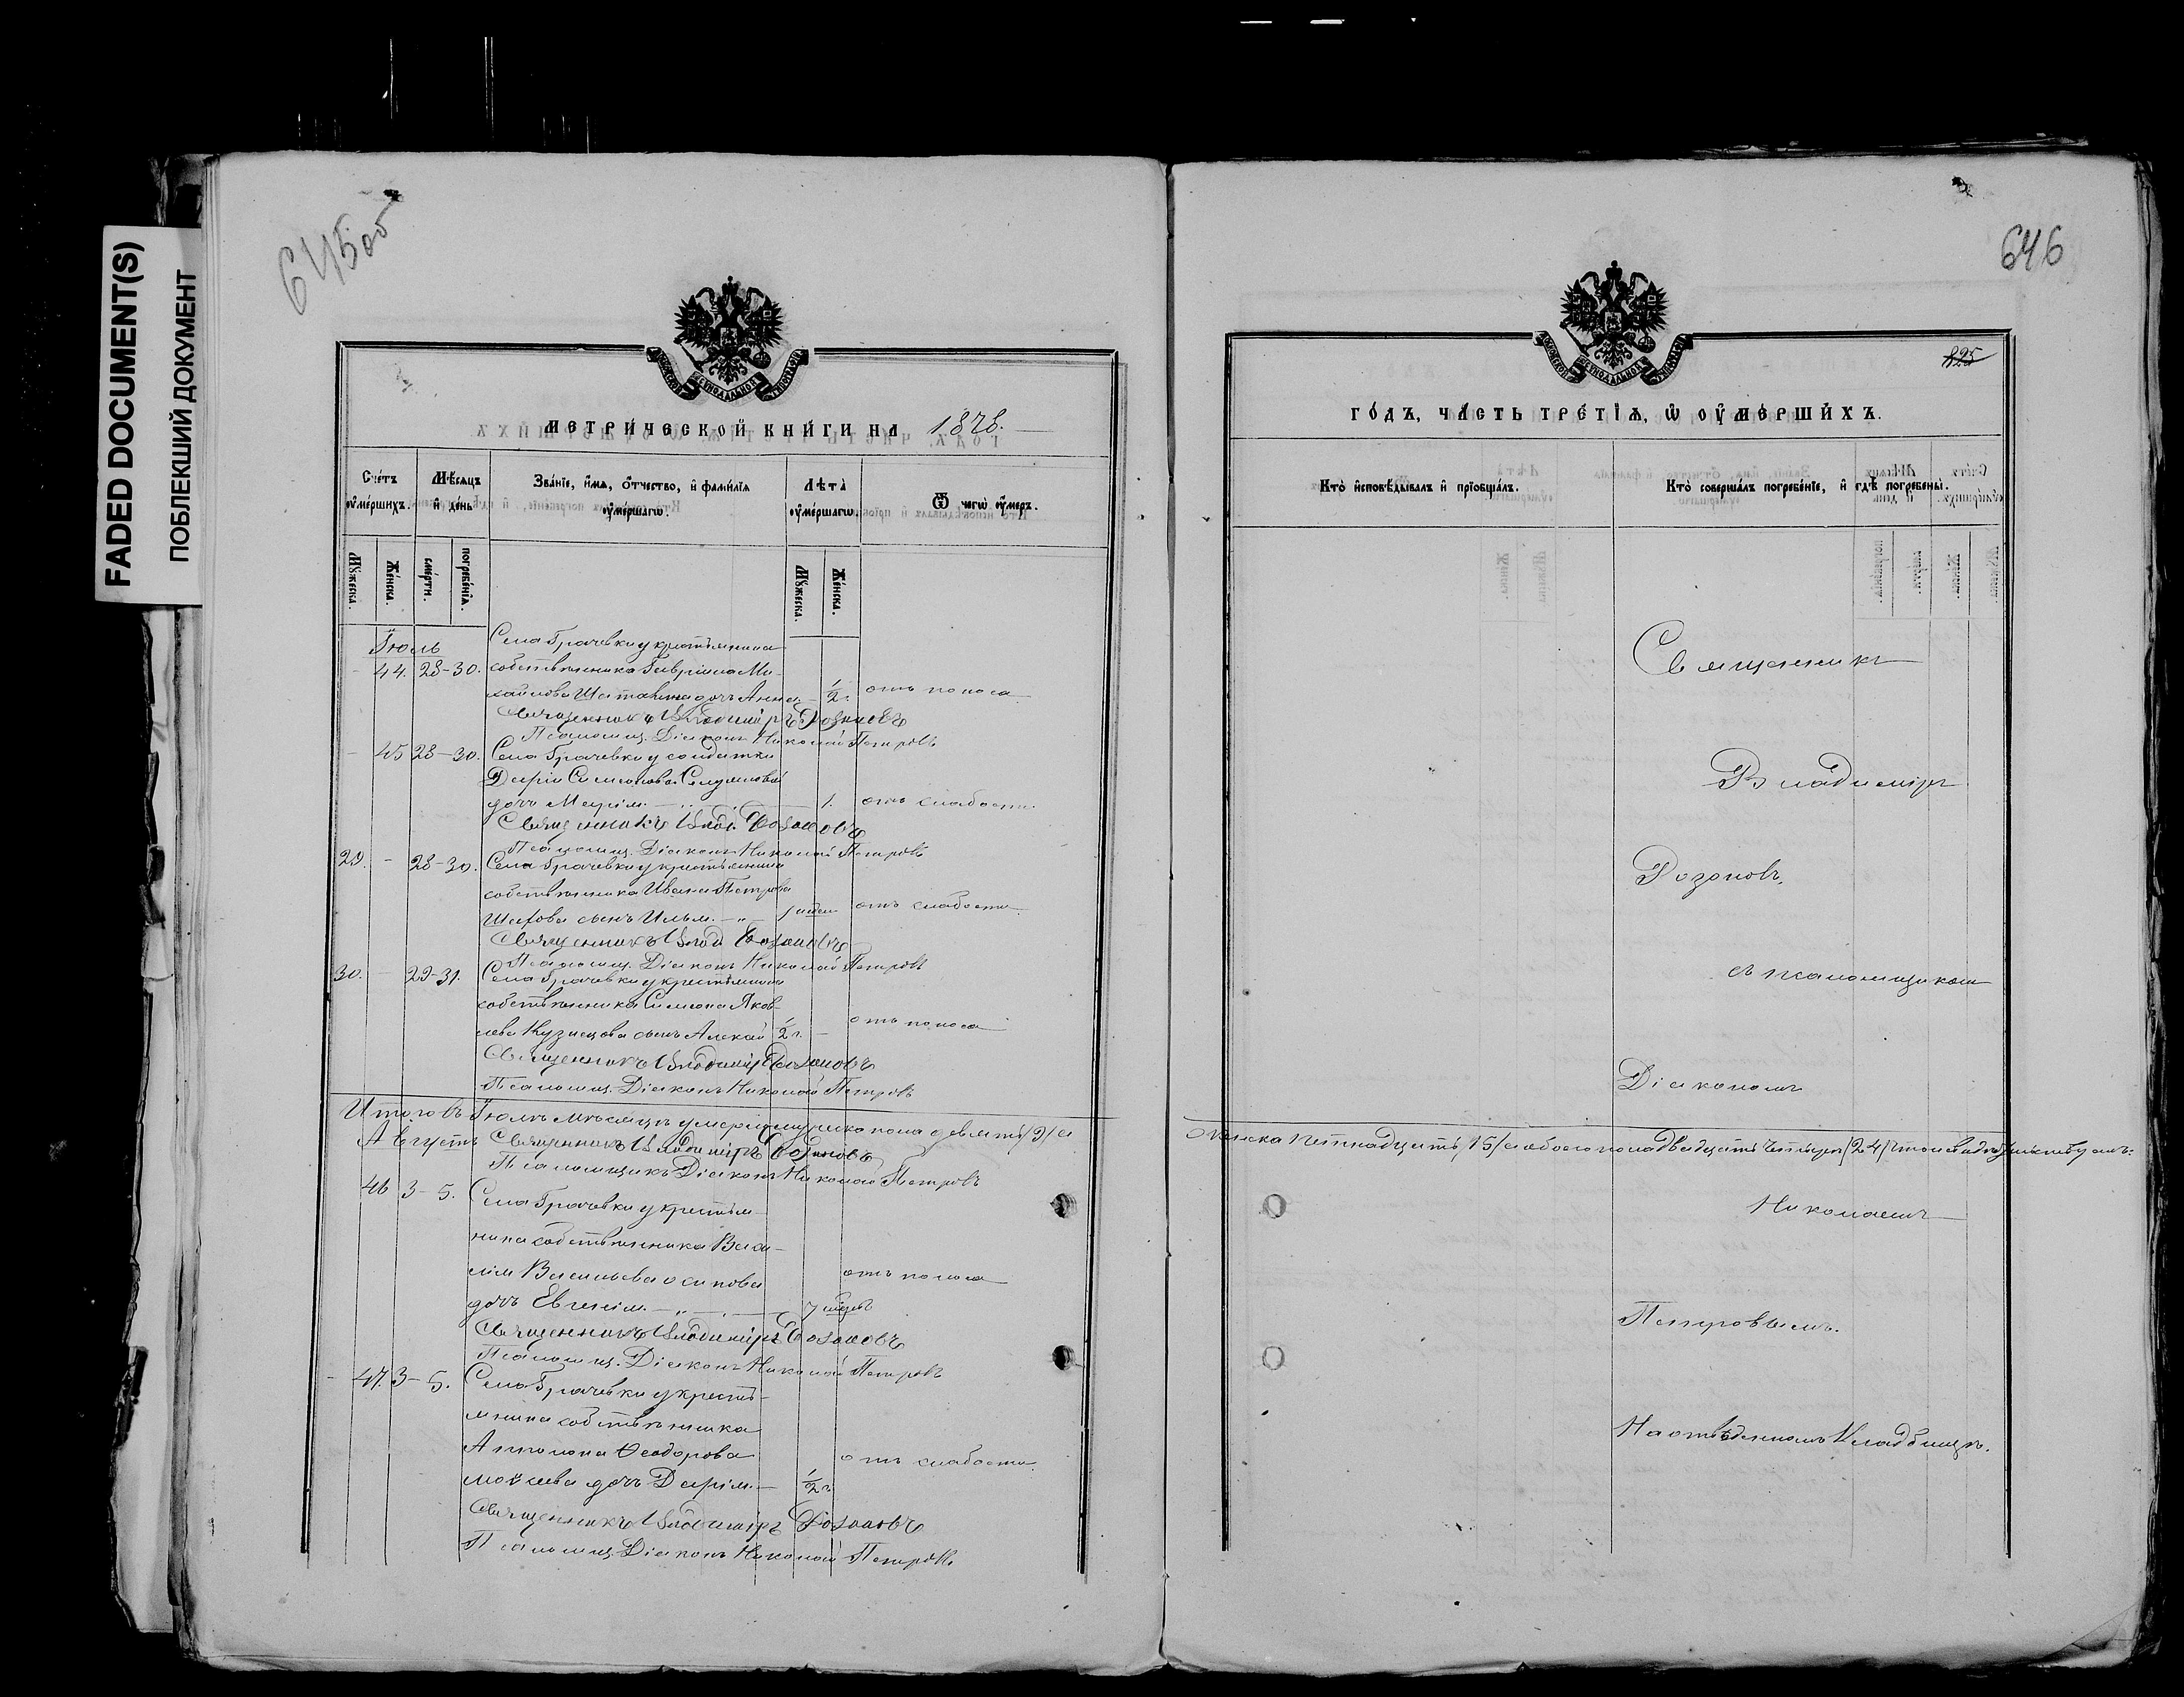 FADED DOCUMENT(S)
ПОБЛЕКШИЙ ДОКУМЕНТ
645об
МЕТРИЧЕСКОЙ КНИГИ НА 187
Счетъ умершихъ.
Мѣсяцъ и день
Званіе, имя, отчество, и фамилія умершагѡ.
Лѣта умершагѡ.
Ѿ чегѡ умеръ.
Мужеска.
Женска.
смерти.
погребенія.
Мужеска.
Женска.
Іюль
Села Грачевки у крестьянина
44. 28-30. собственника Гавріила Ми-
хайлова дочь Анна - 1/2 г. отъ поноса
Священникъ Владиміръ Розановъ
Псаломщ. Діаконъ Николай Петровъ
45 28-30. Села Грачевки у солдатки
Даріи Симеоновой
дочь Марія. 1. отъ слабости.
Священникъ Влад. Розановъ
Псаломщ. Діаконъ Николай Петровъ
29. - 28-30. Села Грачевки у крестьянина
собственника Ивана Петрова
сынъ Илья. 1 отъ слабости.
Священникъ Влад Розановъ
Псаломщ. Діаконъ Николай Петровъ
30. - 29-31. Села Грачевки у крестьянина
собственника Симеона Яков-
лева Кузнецова сынъ Алексѣй 1/2 г. - отъ поноса
Священникъ Владиміръ Розановъ
Псаломщ. Діаконъ Николай Петровъ
Итого въ Іюлѣ мѣсяцѣ умерло мужеска пола девять /9/ а
Августъ Священникъ Владиміръ Розановъ
Псаломщикъ Діаконъ Николай Петровъ
46 3-5. Села Грачевки у крестья-
нина собственника Васи-
лія Васильева Осипова отъ поноса
дочь Евгенія. 7
Священникъ Владиміръ Розановъ
Псаломщ. Діаконъ Николай Петровъ
- 47. 3-5. Села Грачевки у кресть-
янина собственника
Ѳеодорова отъ слабости.
дочь Дарія. - 1/2 г.
Священникъ Владиміръ Розановъ
Псаломщ. Діаконъ Николай Петровъ
646
825
ГОДЪ, ЧАСТЬ ТРЕТІЯ, Ѡ ОУМЕРШИХЪ.
Кто исповѣдывалъ и пріобщалъ.
Кто совершалъ погребеніе, и гдѣ погребены.
Священникъ
Владиміръ
Розановъ,
съ псаломщикомъ
Діакономъ
женска пятнадцать /15/ а обоего пола двадцать четыре /24/
Николаемъ
Петровымъ.
На отведенномъ Кладбищѣ.